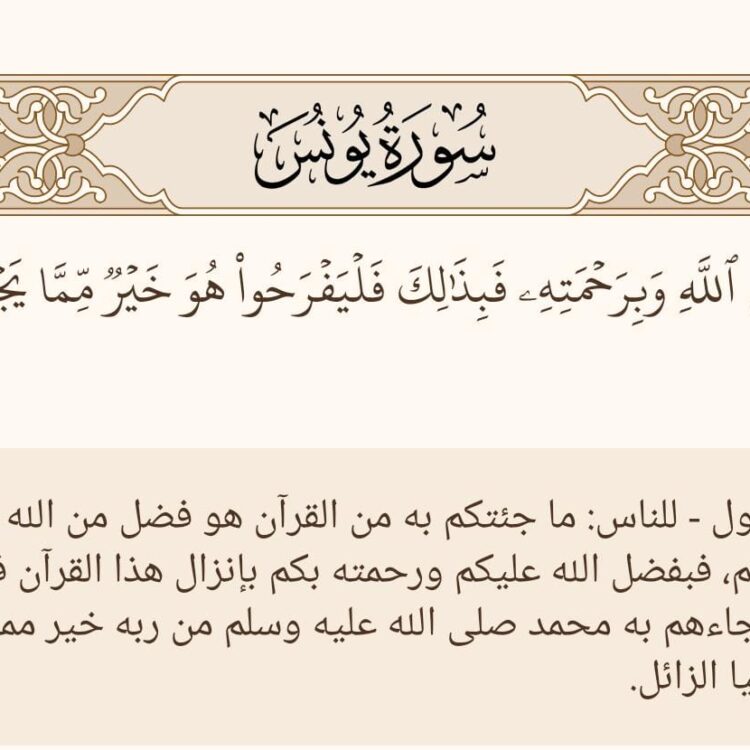 سُورَةُ يُونُسَ
ٱللَّهِ وَبِرَحْمَتِهِۦ فَبِذَٰلِكَ فَلْيَفْرَحُوا۟ هُوَ خَيْرٌۭ مِّمَّا
ول - للناس: ما جئتكم به من القرآن هو فضل من الله
م، فبفضل الله عليكم ورحمته بكم بإنزال هذا القرآن
جاءهم به محمد صلى الله عليه وسلم من ربه خير
يا الزائل.